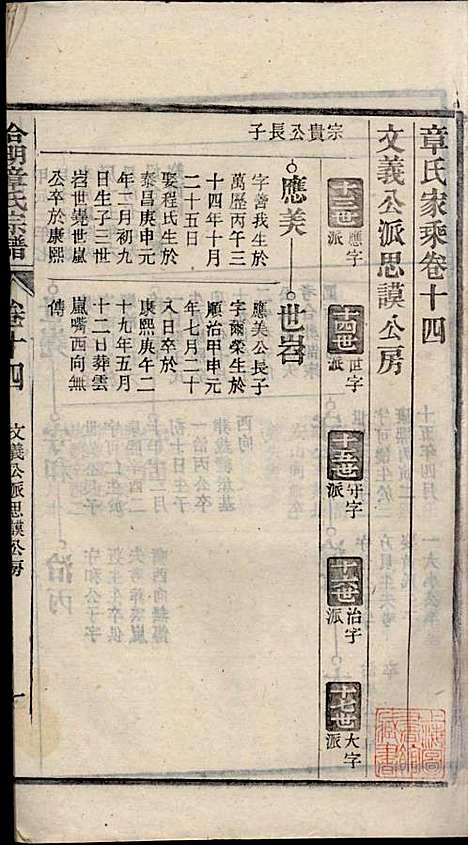 章氏家乘卷十四
文義公派思謨公房
十三世應字派
十四世世字派
十五世守字派
十六世治字派
十七世大字派
宗貴公長子
應美
字善我生於
萬歷丙午三
十四年十月
二十五日
娶程氏生於
泰昌庚申元
年二月初九
日生子三世
岩世嶴世嵐
公卒於康熙
世岩
應美公長子
字爾榮生於
順治甲申元
年七月二十
入日卒於
康熙庚午二
十九年五月
十二日葬雲
嵐嘴西向無
傳
章氏宗譜
卷十四
文義公派思謨公房
一
上海圖書館藏書